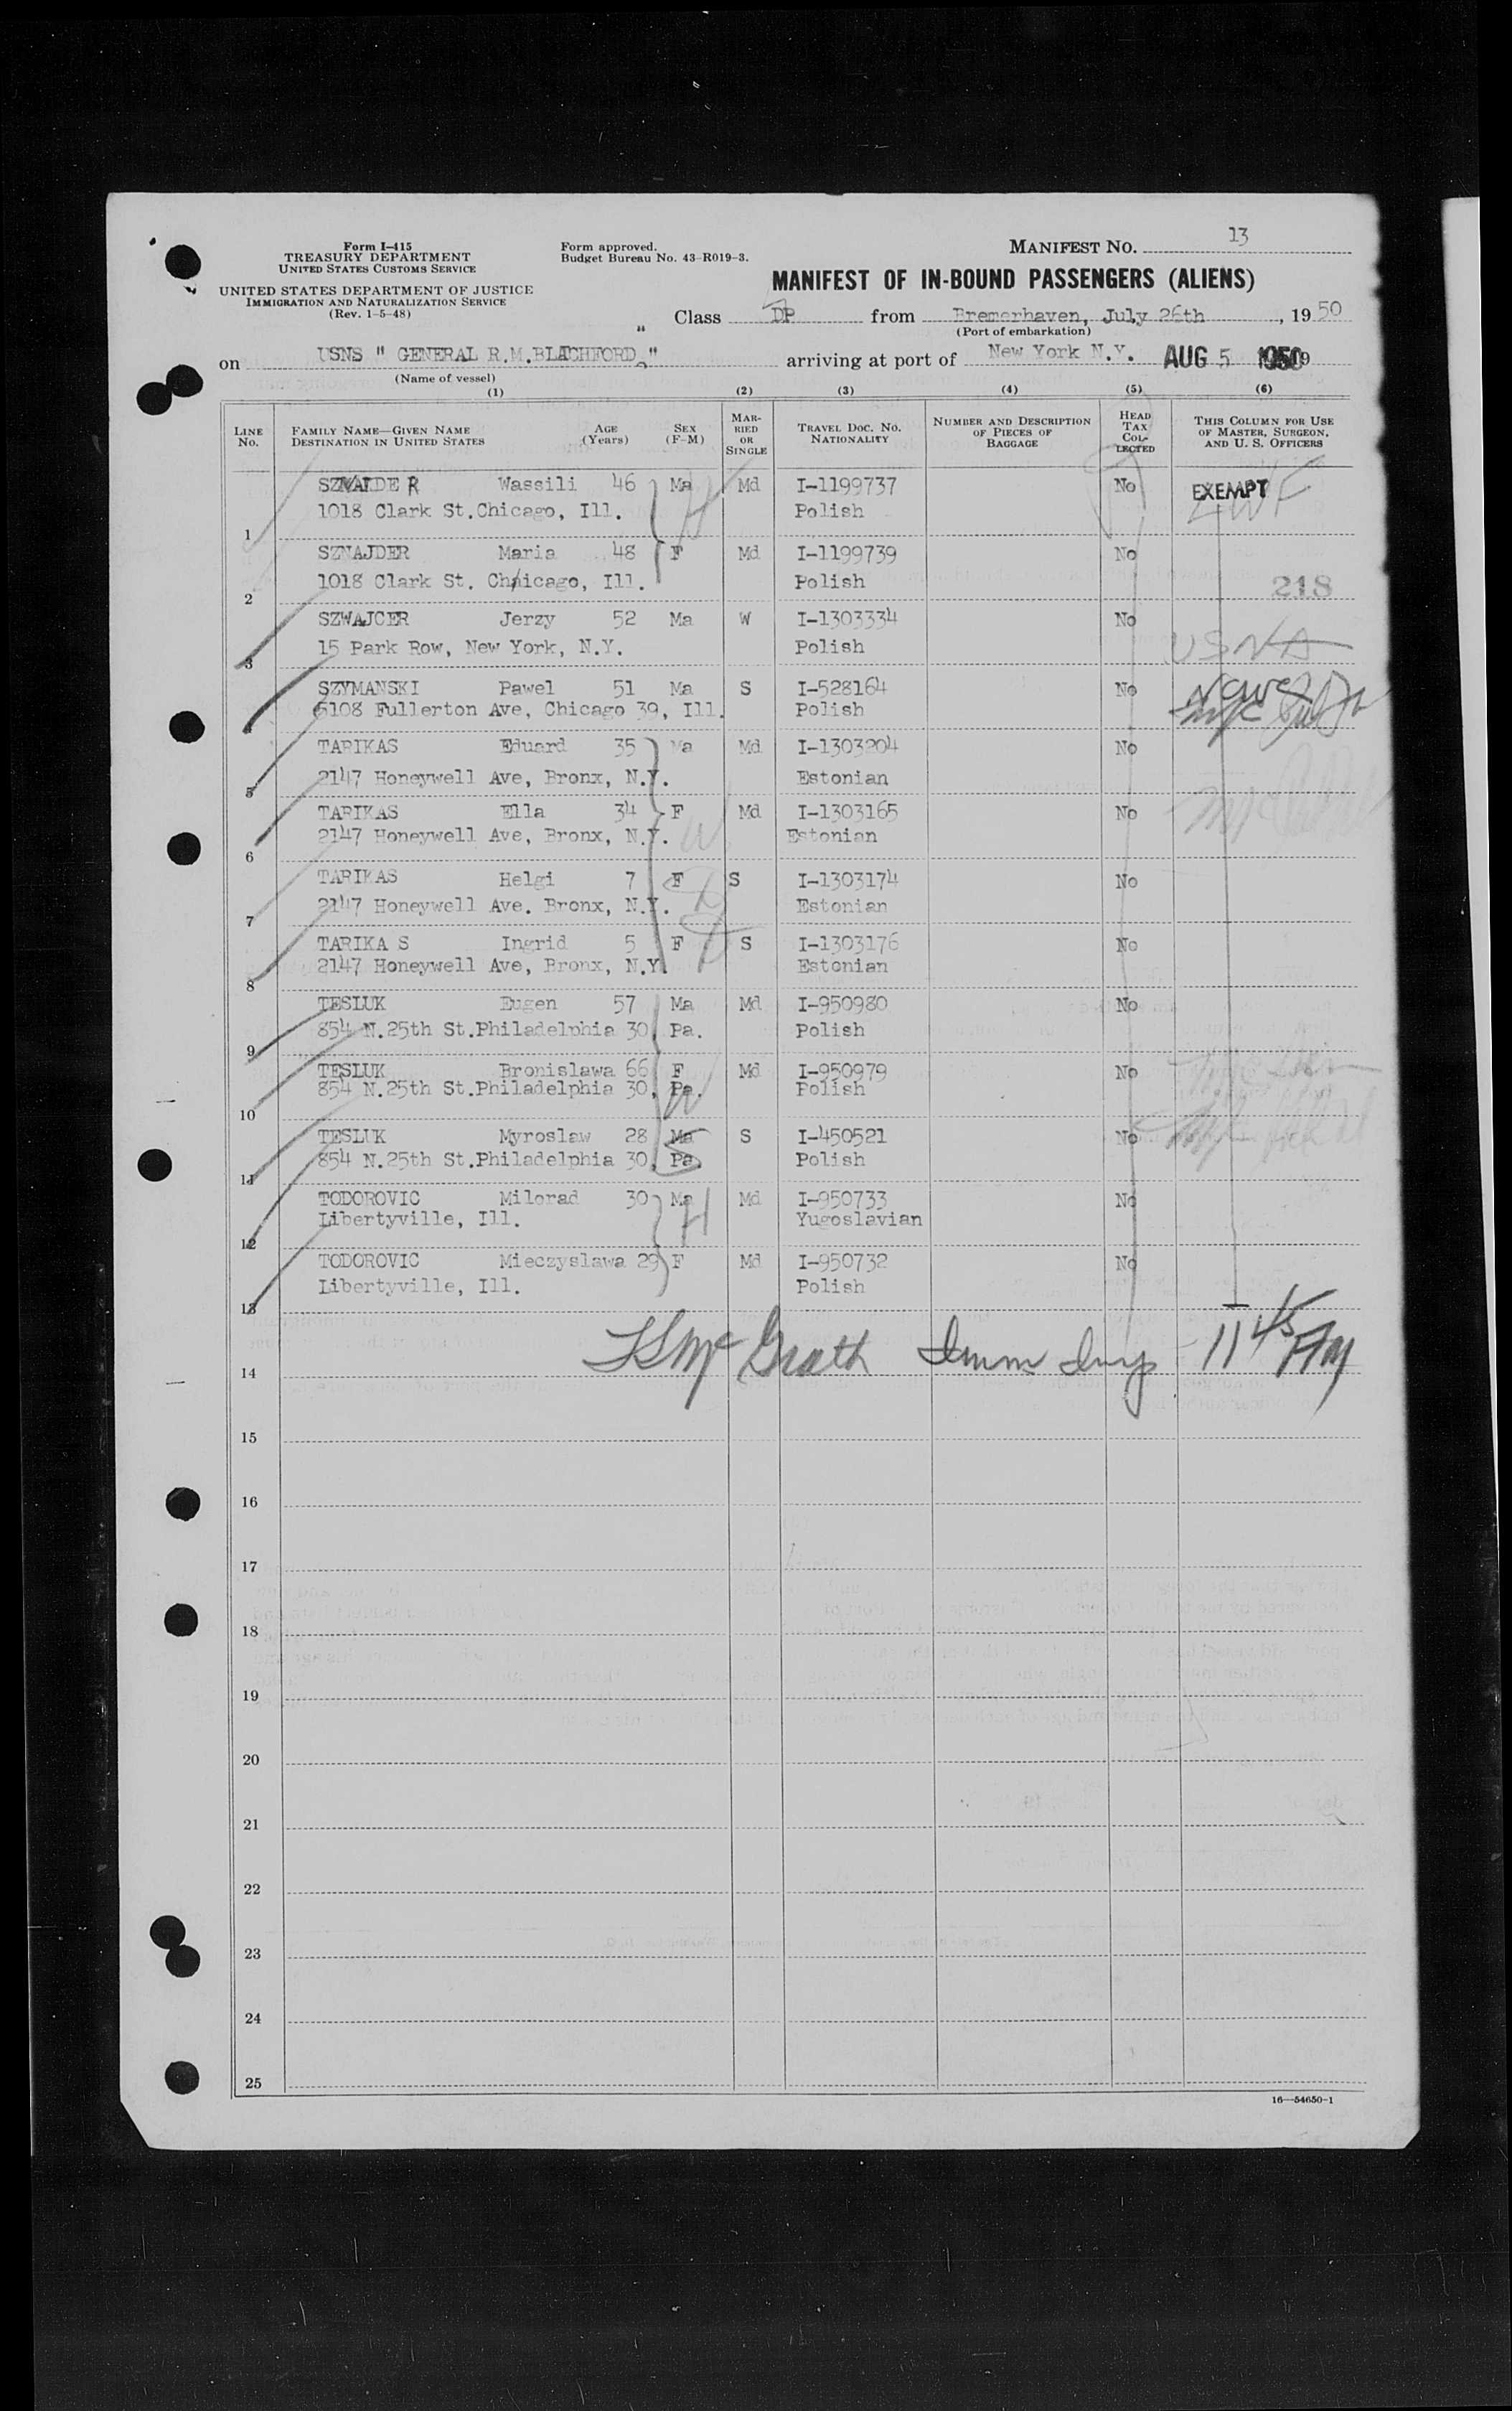 Form I-415
TREASURY DEPARTMENT
UNITED STATES CUSTOMS SERVICE
UNITED STATES DEPARTMENT OF JUSTICE
IMMIGRATION AND NATURALIZATION SERVICE
(Rev. 1-5-48)
Form approved.
Budget Bureau No. 43-R019-3.
MANIFEST NO. 13
MANIFEST OF IN-BOUND PASSENGERS (ALIENS)
Class DP from Bremerhaven, July 26th, 1950
(Port of embarkation)
on USNS " GENERAL R.M.BLATCHFORD " arriving at port of New York N.Y. AUG 5 1950
(Name of vessel)
(1) (2) (3) (4) (5) (6)
LINE No. FAMILY NAME—GIVEN NAME DESTINATION IN UNITED STATES AGE (Years) SEX (F-M) MARRIED OR SINGLE TRAVEL DOC. NO. NATIONALITY NUMBER AND DESCRIPTION OF PIECES OF BAGGAGE HEAD TAX COLLECTED THIS COLUMN FOR USE OF MASTER, SURGEON, AND U. S. OFFICERS
SZNAJDER Wassili 46 Ma Md I-1199737 No EXEMPT
1 1018 Clark St.Chicago, Ill. Polish
SZNAJDER Maria 48 F Md I-1199739 No
2 1018 Clark St. Chicago, Ill. Polish 218
SZWAJCER Jerzy 52 Ma W I-1303334 No
3 15 Park Row, New York, N.Y. Polish USNA
SZYMANSKI Pawel 51 Ma S I-528164 No
4 6108 Fullerton Ave, Chicago 39, Ill. Polish
TARIKAS Eduard 35 Ma Md I-1303204 No
5 2147 Honeywell Ave, Bronx, N.Y. Estonian
TARIKAS Ella 34 F Md I-1303165 No
6 2147 Honeywell Ave, Bronx, N.Y. Estonian
TARIKAS Helgi 7 F S I-1303174 No
7 2147 Honeywell Ave. Bronx, N.Y. Estonian
TARIKA S Ingrid 5 F S I-1303176 No
8 2147 Honeywell Ave, Bronx, N.Y. Estonian
TESLUK Eugen 57 Ma Md I-950980 No
9 854 N.25th St.Philadelphia 30, Pa. Polish
TESLUK Bronislawa 66 F Md I-950979 No
10 854 N.25th St.Philadelphia 30, Pa. Polish
TESLUK Myroslaw 28 Ma S I-450521 No
11 854 N.25th St.Philadelphia 30, Pa. Polish
TODOROVIC Milorad 30 Ma Md I-950733 No
12 Libertyville, Ill. Yugoslavian
TODOROVIC Mieczyslawa 29 F Md I-950732 No
13 Libertyville, Ill. Polish
14 McGrath Imm Insp 11 45 AM
15
16
17
18
19
20
21
22
23
24
25
16—54650-1